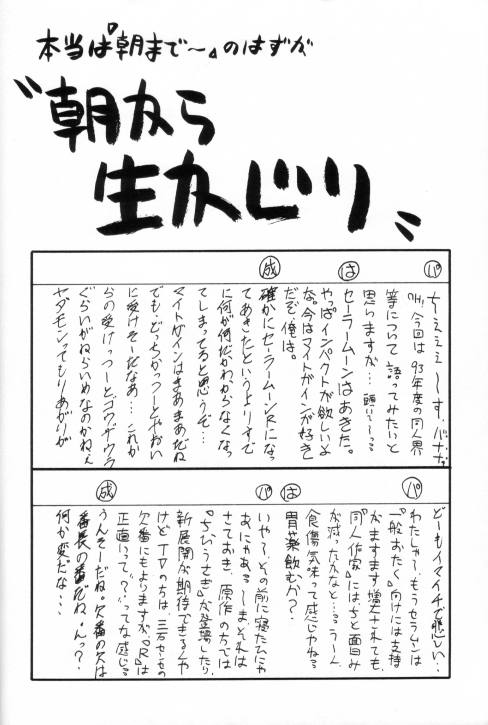 本当は『朝まで〜』のはずが
〝朝から
生かじり〟
パ
ちぇぇぇ〜す。バナナ
『H』、今回は93年度の同人界
等について語ってみたいと
思いますが…
は
セーラームーンはあきた。
やっぱインパクトが欲しいよ
な。今はマイトガインが好き
だぞ俺は。
成
確かにセーラームーンRになっ
てあきたというよりすで
に何が何だかわからなくなっ
てしまってると思うぞ…
マイトガインはまあまあだね
でも、どっちかっつーとやおい
に受けそーだなあ…これか
らの受けっつーとゴウザウラ
ぐらいがねらいめなのかねぇ
ヤダモンってもりあがりが
パ
どーもイマイチで悲しい…
わたしゃ〜もうセラムンは
『一般おたく』向けには支持
がますます増大されても、
『同人作家』にはちと面白み
が減ったかなと…うーん、
食傷気味って感じかねぇ
は
胃薬飲むか?
パ
いや〜、その前に寝たひにゃ
あにゃあるーまそれは
さておき、原作の方では
『ちびうさぎ』が登場したり、
新展開が期待できるんや
けど TVのちは、三石セーもの
欠番にもよりますが、『R』は
正直いって“?”ってな感じ。
成
うんそーだね。欠番の欠は
番長の番だね。んっ?
何か変だな…